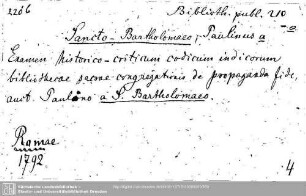 2206
Biblioth. publ. 210
Sancto-Bartholomaeo, Paulinus a
Examen historico-criticum codicum indicorum
bibliothecae sacrae congregationis de propaganda fide,
auct. Paulino a S. Bartholomaeo.
Romae
1792
4